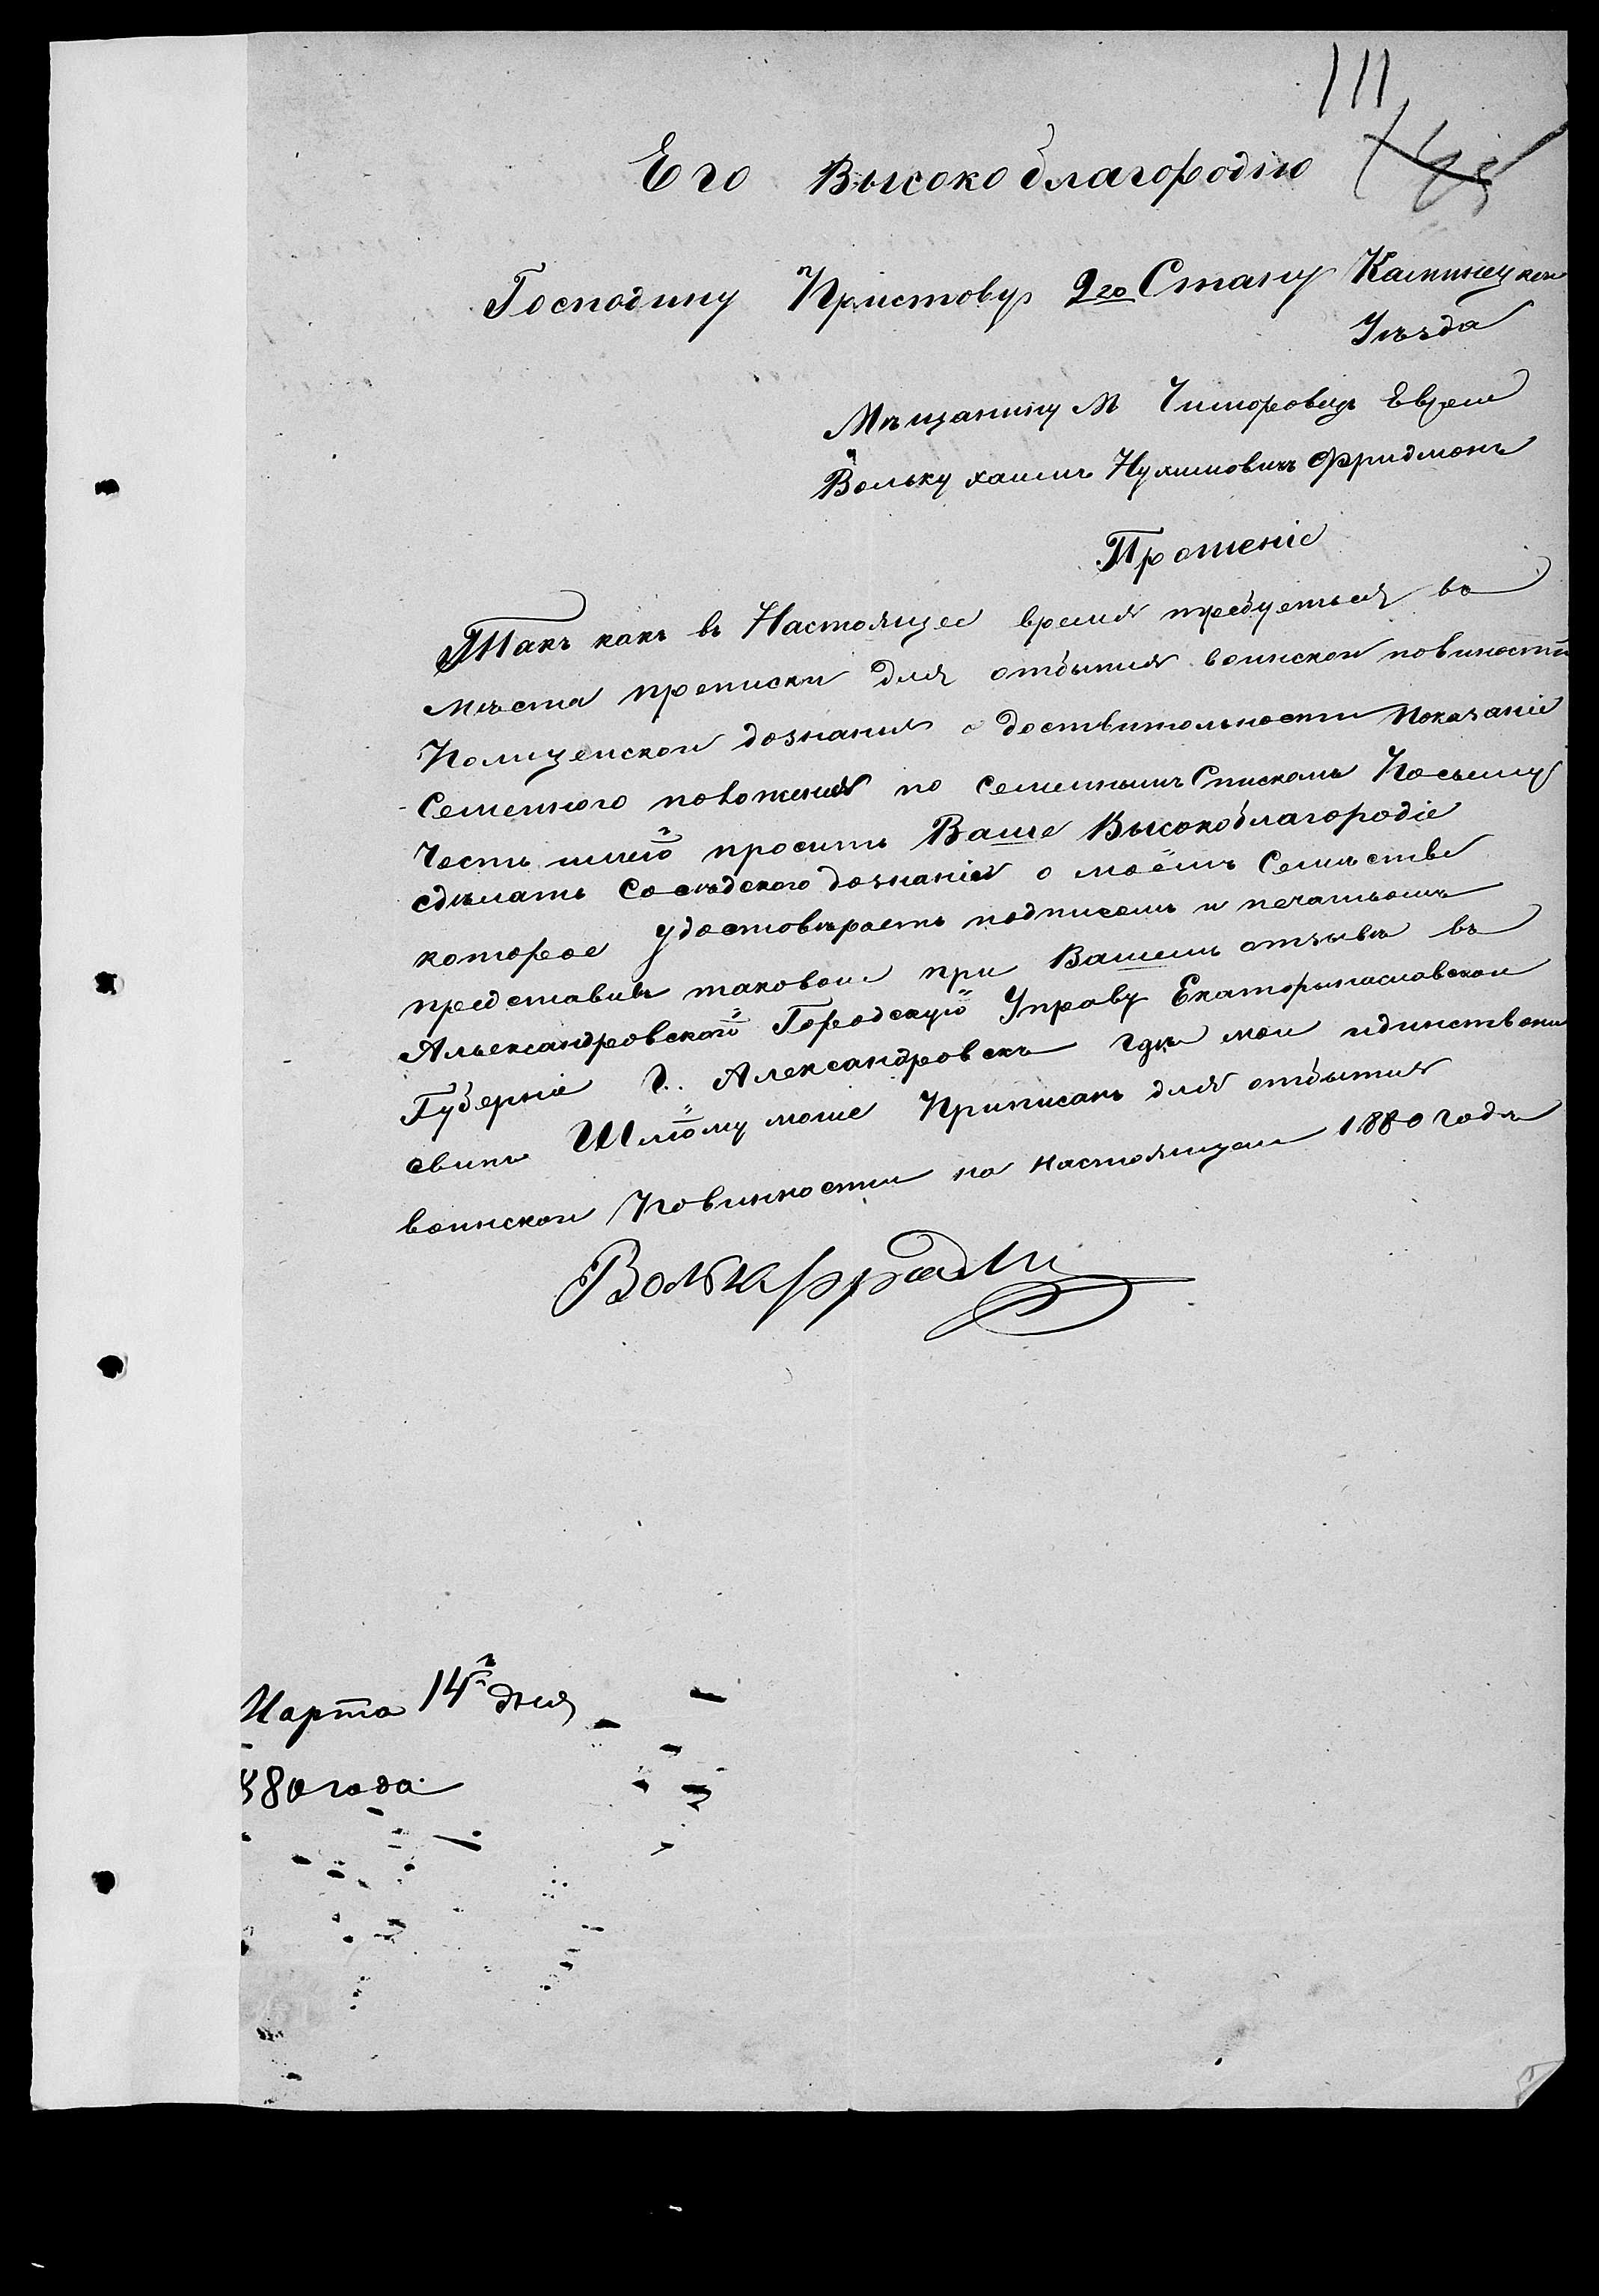 111
Его Высокоблагородію
Господину Приставу 2го Стану Каминецкои
Уъзда
Мъщанину М Чиморовцъ Евреи
Вольку хаимъ Нухимовичъ Фридмонъ
Прошеніе
Такъ какъ въ Настоящее время требуеться во
мъста прописки для отбытия воинскои повиности
Полицеискои дознания о доствительности показаніе
Семеного положения по семеинымъ Спискомъ Посьему
Честь имею просить Ваше Высокоблагородіе
сдъмать Сосъдского дознание о моёмъ Семъстве
которое удостовърость подписомъ и печатьомъ
представить таковои при Вашемъ отзывъ въ
Альександровской Городскую Управу Екаторинославскои
Губерніе Г. Александровскъ гдъ мои идинствони
свинъ Шлйому моше Приписанъ для отбытия
воинскои Повинности на настоящеи 1880 года
Волькъ Фрадми
Марта 14 дня
880 года